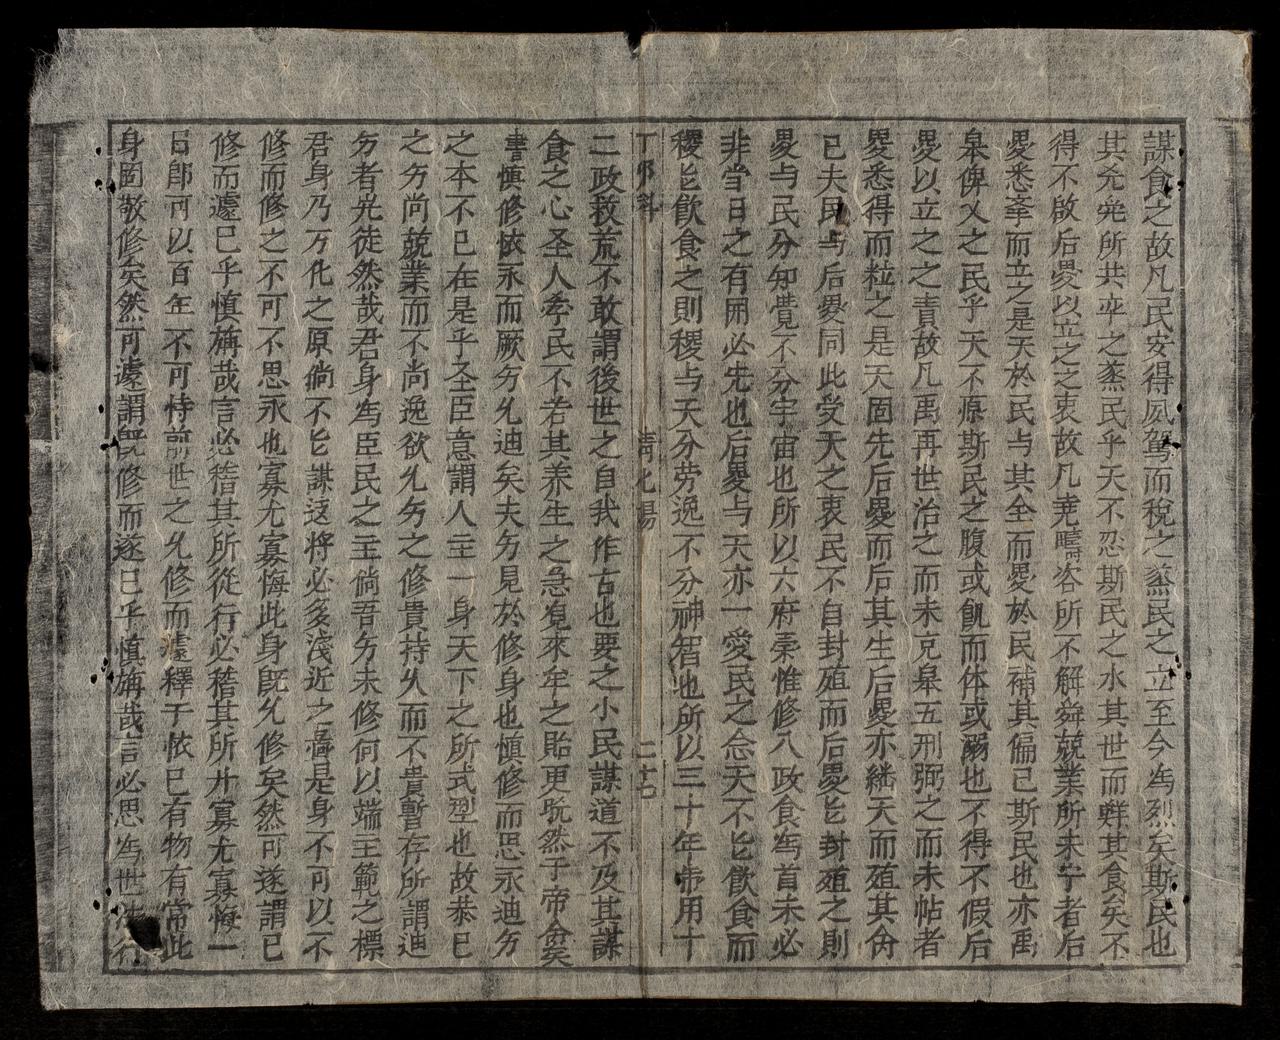 謀食之故凡民安得夙駕而稅之蒸民之立至今為烈矣斯民也
其光堯所共卒之蒸民乎天不忍斯民之水其世而鮮其食矣不
得不啟后稷以立之之衷故凡堯疇咨所不解舜兢業所未寧者后
稷悉牽而立立是天於民与其全而稷於民補其偏已斯民也亦禹
皋俾乂之民乎天不瘝斯民之腹或飢而体或溺也不得不假后
稷以立之之責故凡禹再世治之而未克皋五刑弼之而未帖者
稷悉得而粒之是天固先后稷而后其生后稷亦継天而殖其
已夫民与后稷同此受天之衷民不自封殖而后稷㠯封殖之則
稷与民分知覺不分宇宙也所以六府 惟修八政食為首未必
非当日之有開必先也后稷与天亦一愛民之念天不㠯飲食而
稷㠯飲食之則稷与天分劳逸不分神智也所以三十年 用十
丁卯科 清化場 二十七
二政救荒不敢謂後世之自我作古也要之小民謀道不及其謀
食之心圣人牽民不若其养生之急 來牟之貽更 然于帝命矣
書慎修 永而厥 允迪矣夫 見於修身也慎修而思永迪
之本不已在是乎圣臣意謂人主一身天下之所式型也故恭己
之 尚兢業而不尚逸欲允 之修貴持久而不貴暫存所謂迪
者光徒然哉君身為臣民之主倘吾 未修何以端主範之標
君身乃万化之原倘不㠯謀这将必多浅近之 是身不可以不
修而修之不可不思永也寡尤寡悔此身既允修矣然可遂謂已
修而遽已乎慎旃哉言必 其所從行必稽其所 寡尤寡悔一
日即可以百年不可恃前世之允修而遽釋于 已有物有常此
身固敬修矣然可遽謂既修而遂已乎慎旃哉言必思為世法行